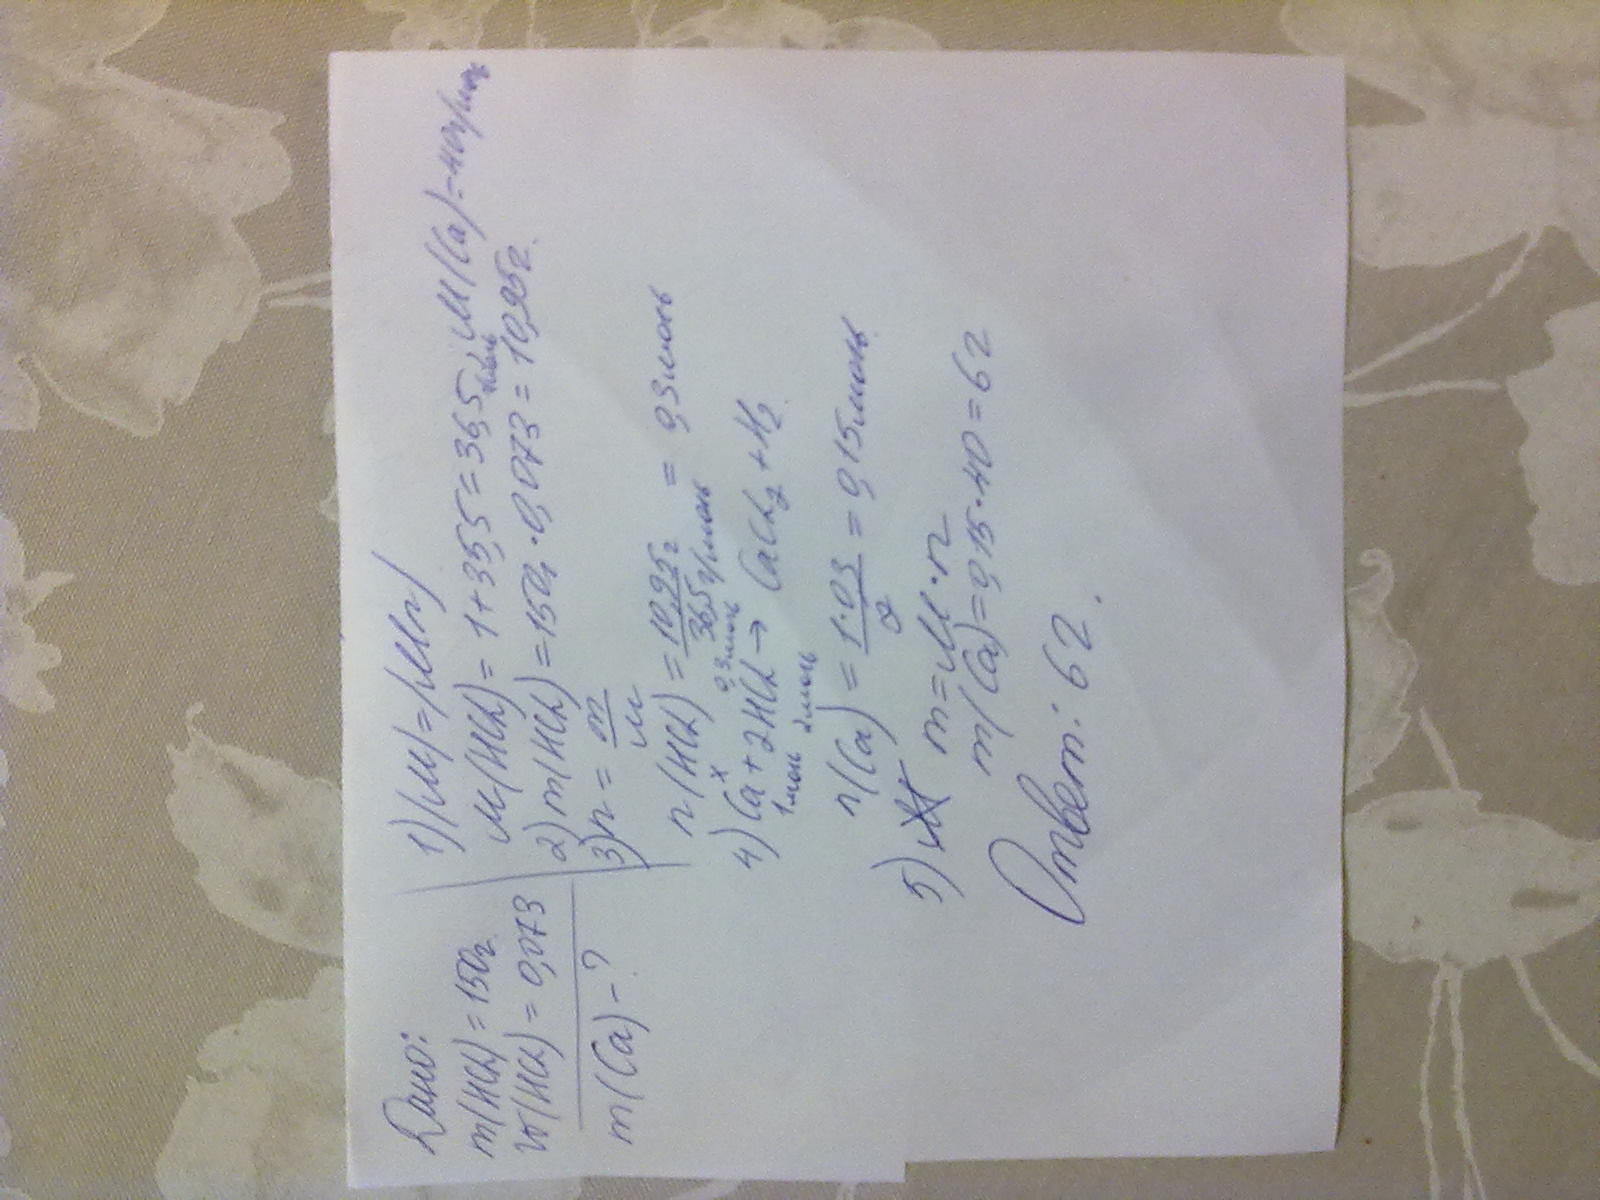 Дано:
m(HCl) = 150г
w(HCl) = 0,073
m(Ca) - ?
1) |M| = |Mr|
M(HCl) = 1 + 35,5 = 36,5 г/моль; M(Ca) = 40г/моль
2) m(HCl) = 150г · 0,073 = 10,95г.
3) n = m/M
n(HCl) = 10,95г / 36,5 г/моль = 0,3моль
x 0,3моль
4) Ca + 2HCl → CaCl₂ + H₂
1моль 2моль
n(Ca) = 1·0,3 / 2 = 0,15моль
5) m = M·n
m(Ca) = 0,15·40 = 6г
Ответ: 6г.